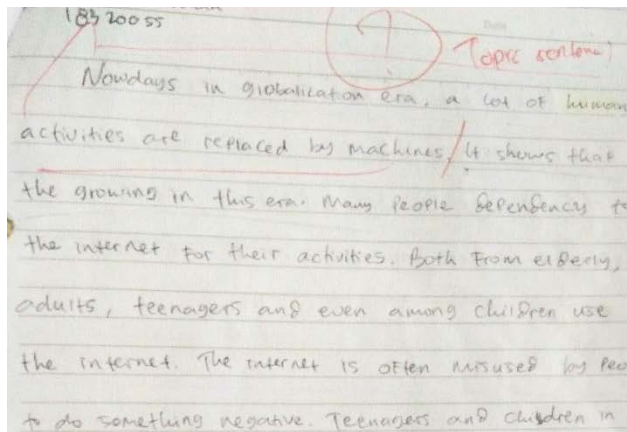 18320055
Topic sentence
Nowdays in globalication era, a lot of human
activities are replaced by machines, It shows that
the growing in this era. Many people dependency to
the internet for their activities. Both from elderly,
adults, teenagers and even among children use
the internet. The internet is often misused by
to do something negative. Teenagers and children in